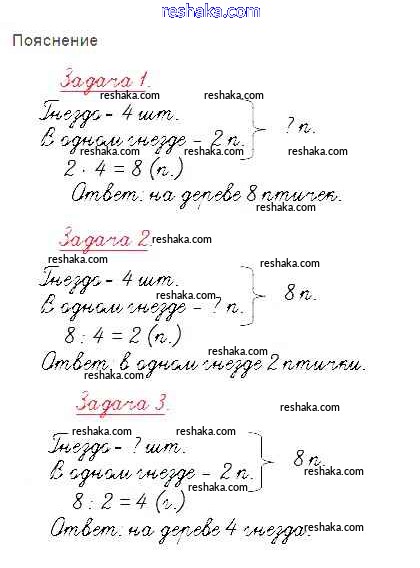 reshaka.com
Пояснение
Задача 1.
reshaka.com reshaka.com
Гнездо – 4 шт.
В одном гнезде – 2 п. ? п.
reshaka.com reshaka.com reshaka.com
2 · 4 = 8 (п.)
Ответ: на дереве 8 птичек.
reshaka.com
Задача 2. reshaka.com
reshaka.com reshaka.com
Гнездо – 4 шт.
reshaka.com 8 п.
В одном гнезде – ? п.
8 : 4 = 2 (п.)
reshaka.com
Ответ, в одном гнезде 2 птички.
reshaka.com
Задача 3.
reshaka.com
reshaka.com reshaka.com
Гнездо – ? шт.
8 п.
В одном гнезде – 2 п. reshaka.com
reshaka.com
8 : 2 = 4 (г.)
Ответ: на дереве 4 гнезда. reshaka.com